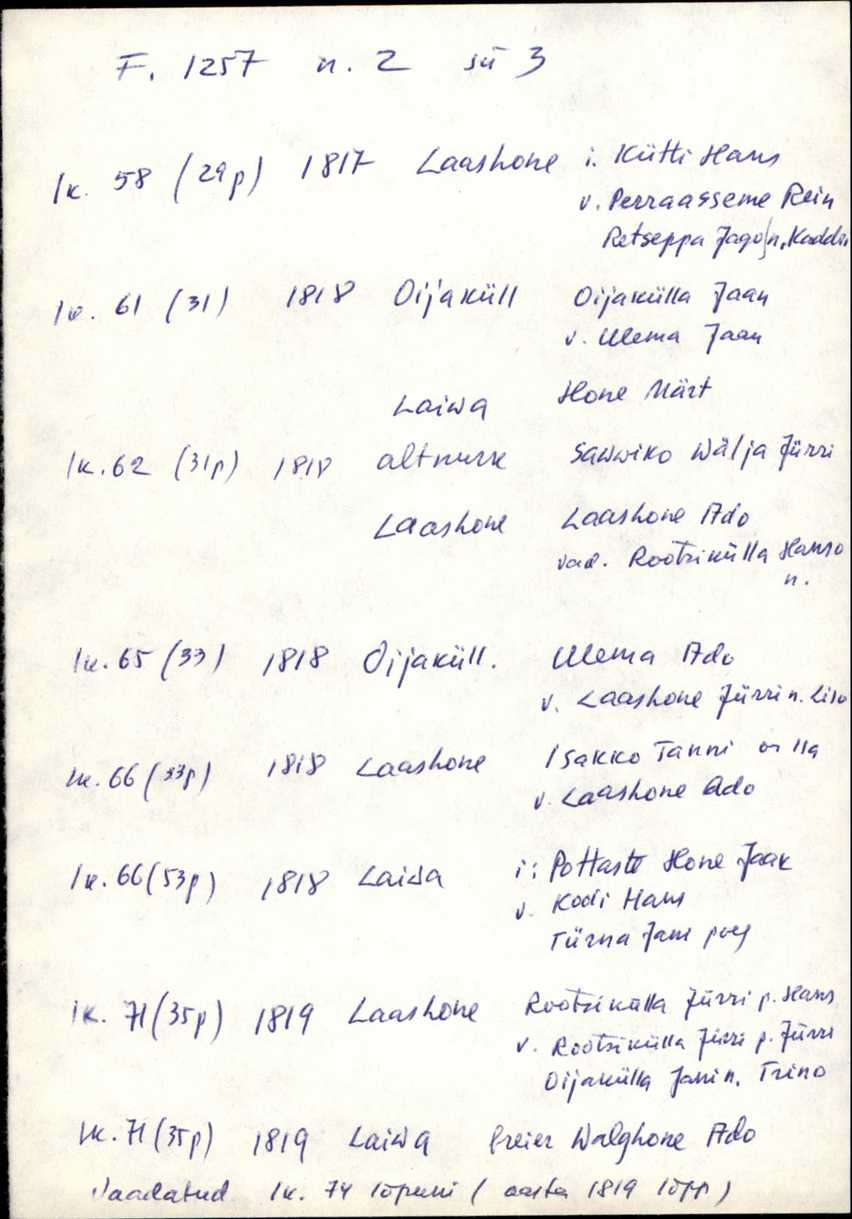 F. 1257 n. 2 sü 3
lk. 58 (29p) 1817 Laashone i. Kütti Hans
v. Perraasseme Rein
Retseppa Jago n. Kaddri
lk. 61 (31) 1818 Oijaküll Oijakülla Jaan
v. Ulema Jaan
Laiwa Hone Märt
lk. 62 (31p) 1818 altnurk Sawwiko Wälja Jürri
Laashone Laashone Ado
vad. Rootsikülla Hanso
n.
lk. 65 (33) 1818 Oijaküll. Ulema Ado
v. Laashone Jürri n. Liso
lk. 66 (33p) 1818 Laashone Isakko Tanni
v. Laashone Ado
lk. 66 (53p) 1818 Laiwa i: Pottaste Hone Jaak
v. Kodi Hans
Türna Jani poeg
lk. 71 (35p) 1819 Laashone Rootsikülla Jürri p. Hans
v. Rootsikülla Jürri p. Jürri
Oijakülla Jani n. Trino
lk. 71 (35p) 1819 Laiwa freier Walghone Ado
Vaadatud lk. 74 lõpuni (aasta 1819 lõpp)